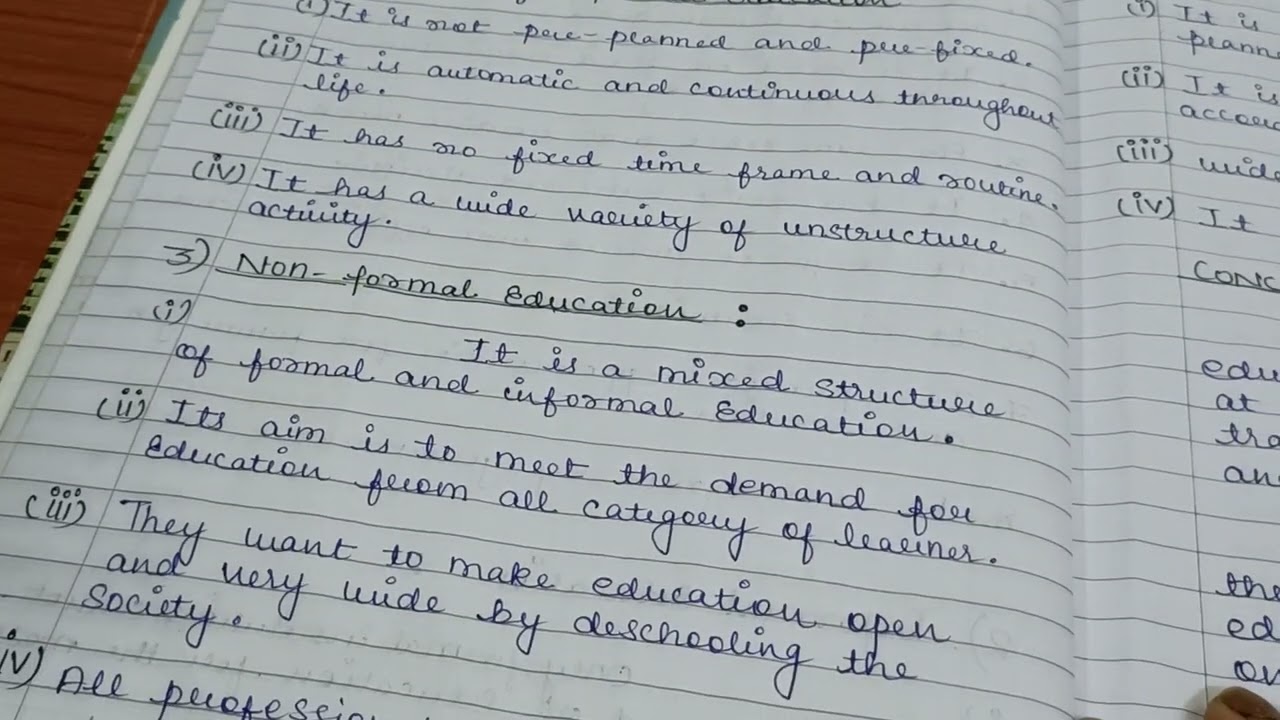 (i) It is not pre-planned and pre-fixed.
(ii) It is automatic and continuous throughout
life.
(iii) It has no fixed time frame and routine.
(iv) It has a wide variety of unstructure
activity.
3) Non-formal Education :
(i)
It is a mixed structure
of formal and informal Education.
(ii) Its aim is to meet the demand for
Education from all category of learner.
(iii) They want to make education open
and very wide by deschooling the
Society.
iv) All
(i) It is
(ii) It is
(iii) wide
(iv) It
edu
at
an
the
ed